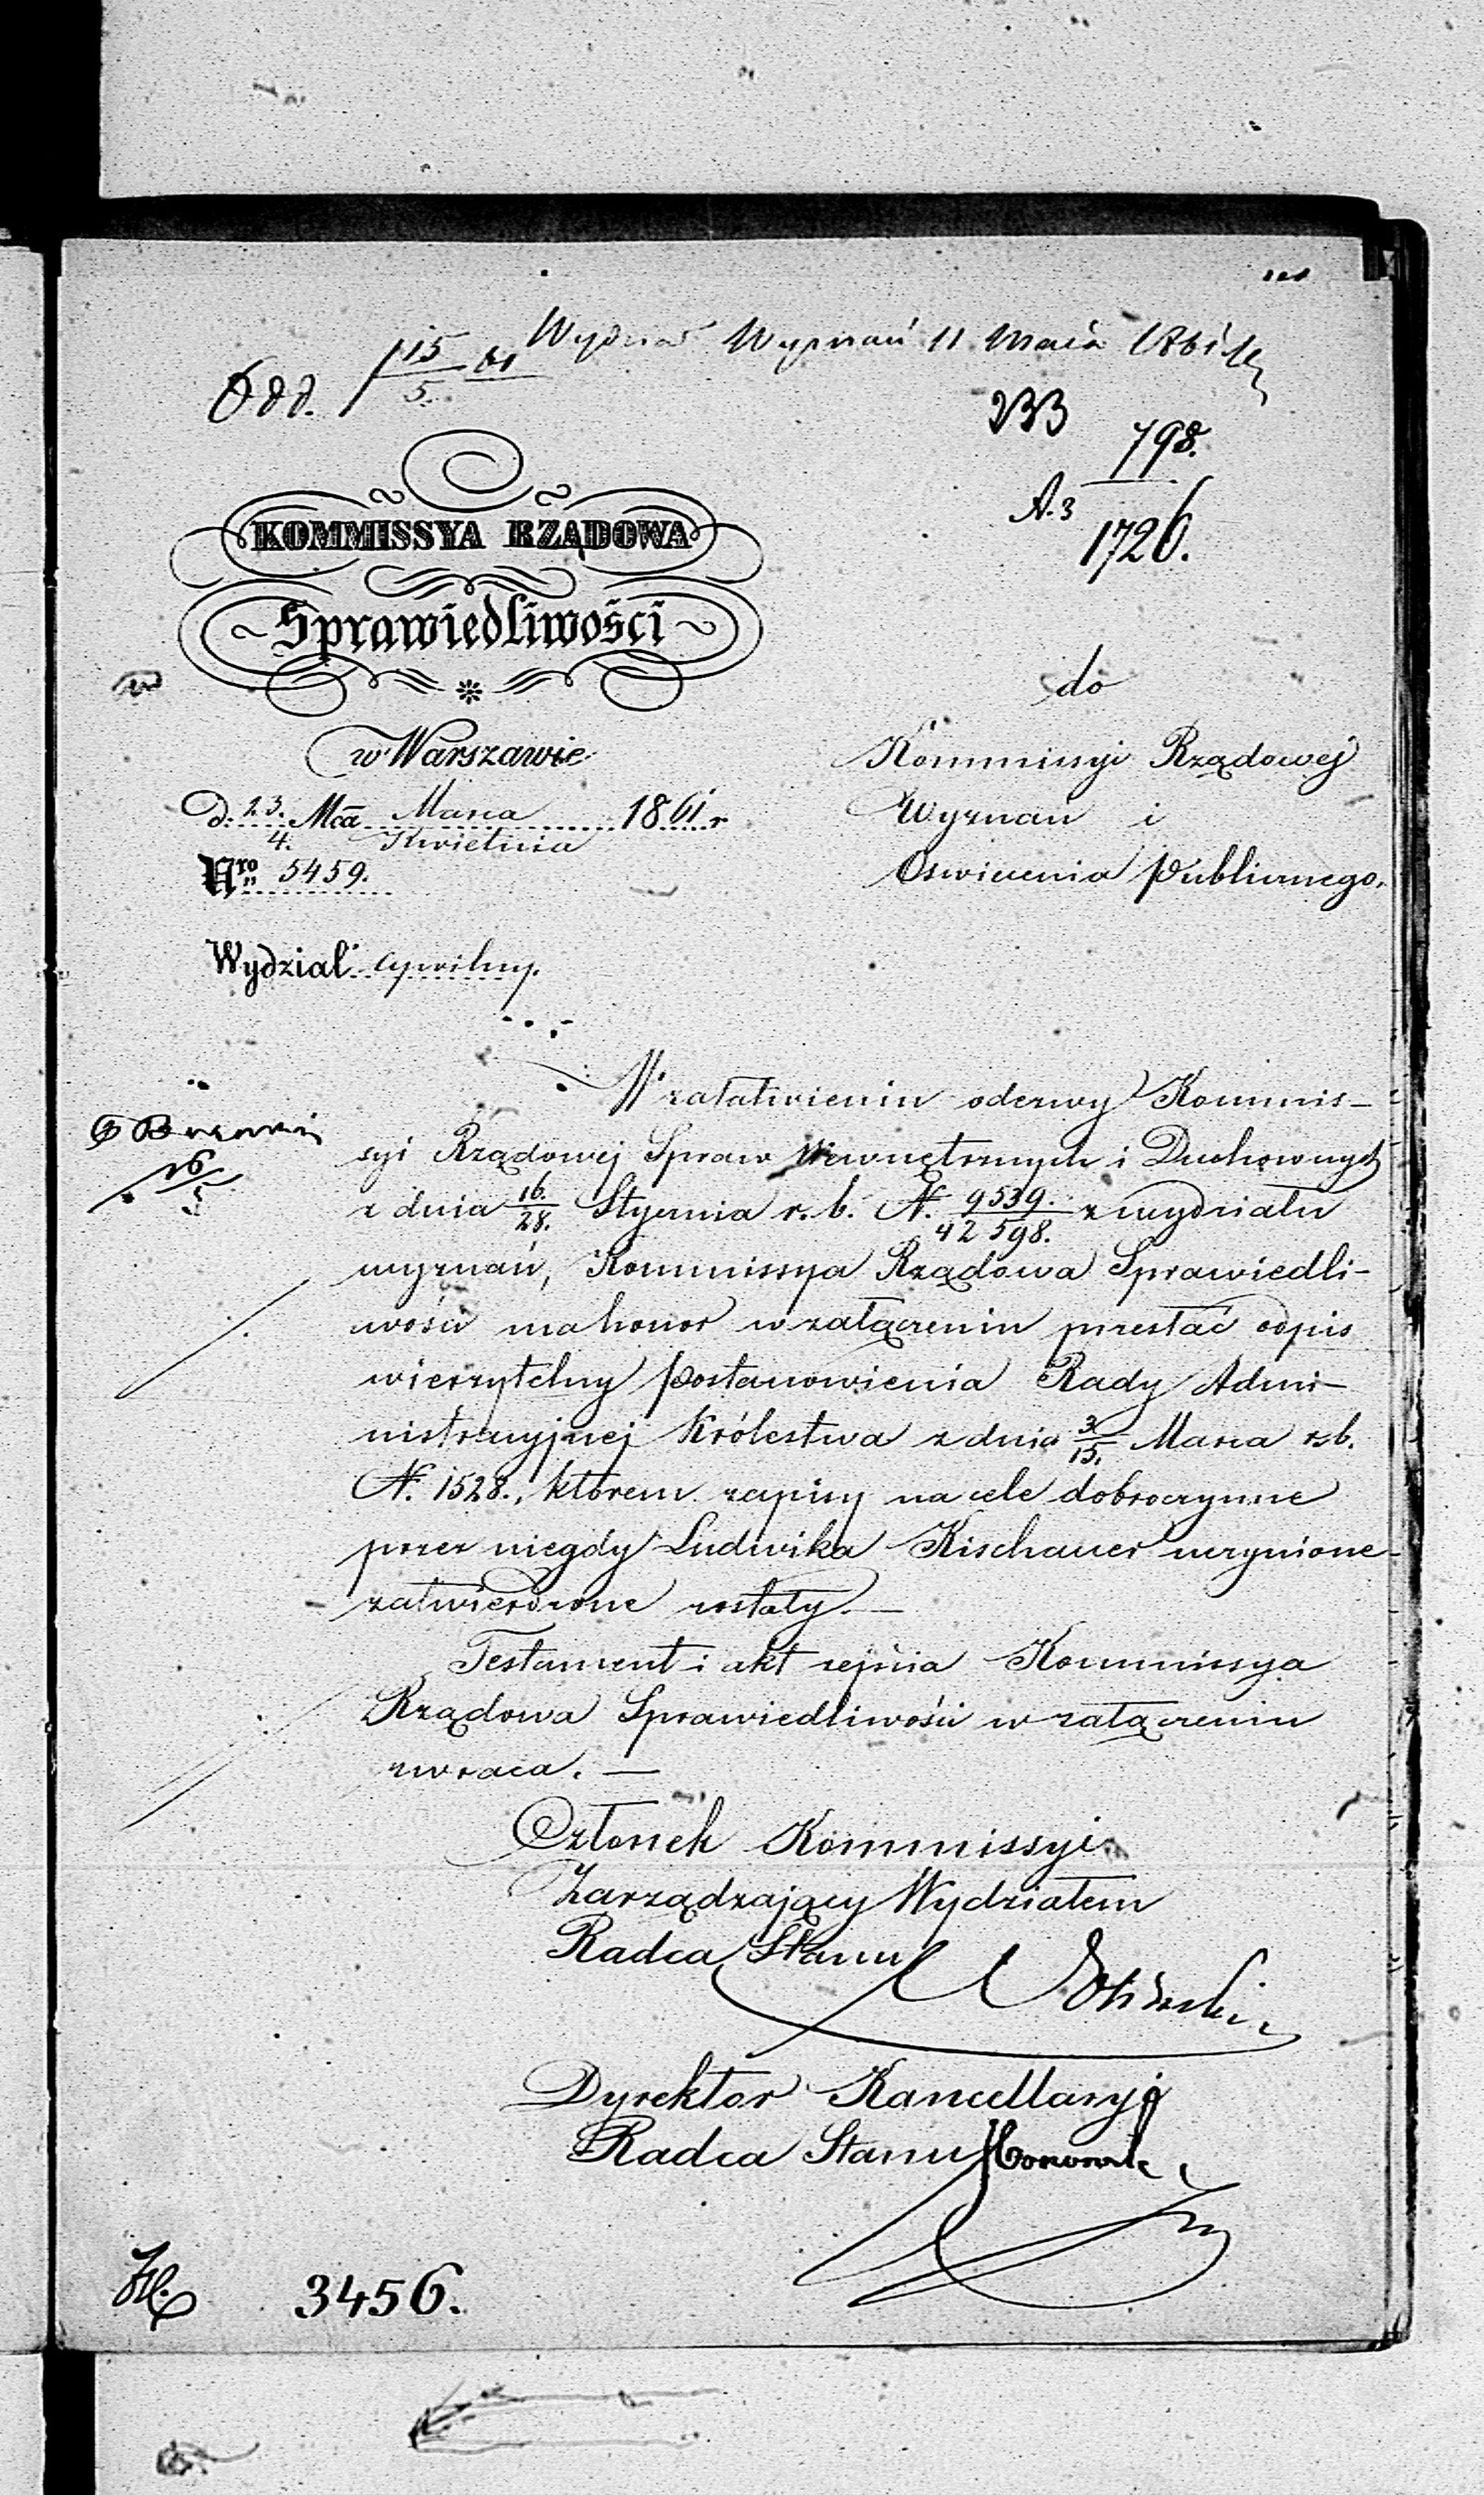 Wydział Wyznań 11 Maia 1861
Odd. 15/5 61
233
798.
A.3
1726.
KOMMISSYA RZĄDOWA
Sprawiedliwości
w Warszawie
d. 23. Mca Marca 1861 r
4. Kwietnia
Nro 5459.
Wydział cywilny.
do
Kommissyi Rządowej
Wyznań i
Oswiecenia Publicznego.
W załatwieniu odezwy Kommis-
syi Rządowej Spraw Wewnętrznych i Duchownych
z dnia 16/28. Stycznia r. b. N. 9539./42598. z wydziału
wyznań, Kommissya Rządowa Sprawiedli-
wości ma honor w załączeniu przesłać odpis
wierzytelny Postanowienia Rady Admi-
nistracyjnej Królestwa z dnia 3/15. Marca r.b.
N. 1528., którem zapisy na cele dobroczynne
przez niegdy Ludwika Kischauer uczynione
zatwierdzone zostały.—
Testament i akt zejścia Kommissya
Rządowa Sprawiedliwości w załączeniu
zwraca.—
Członek Kommissyi
Zarządzający Wydziałem
Radca Stanu
Dyrektor Kancellaryi
Radca Stanu
3456.